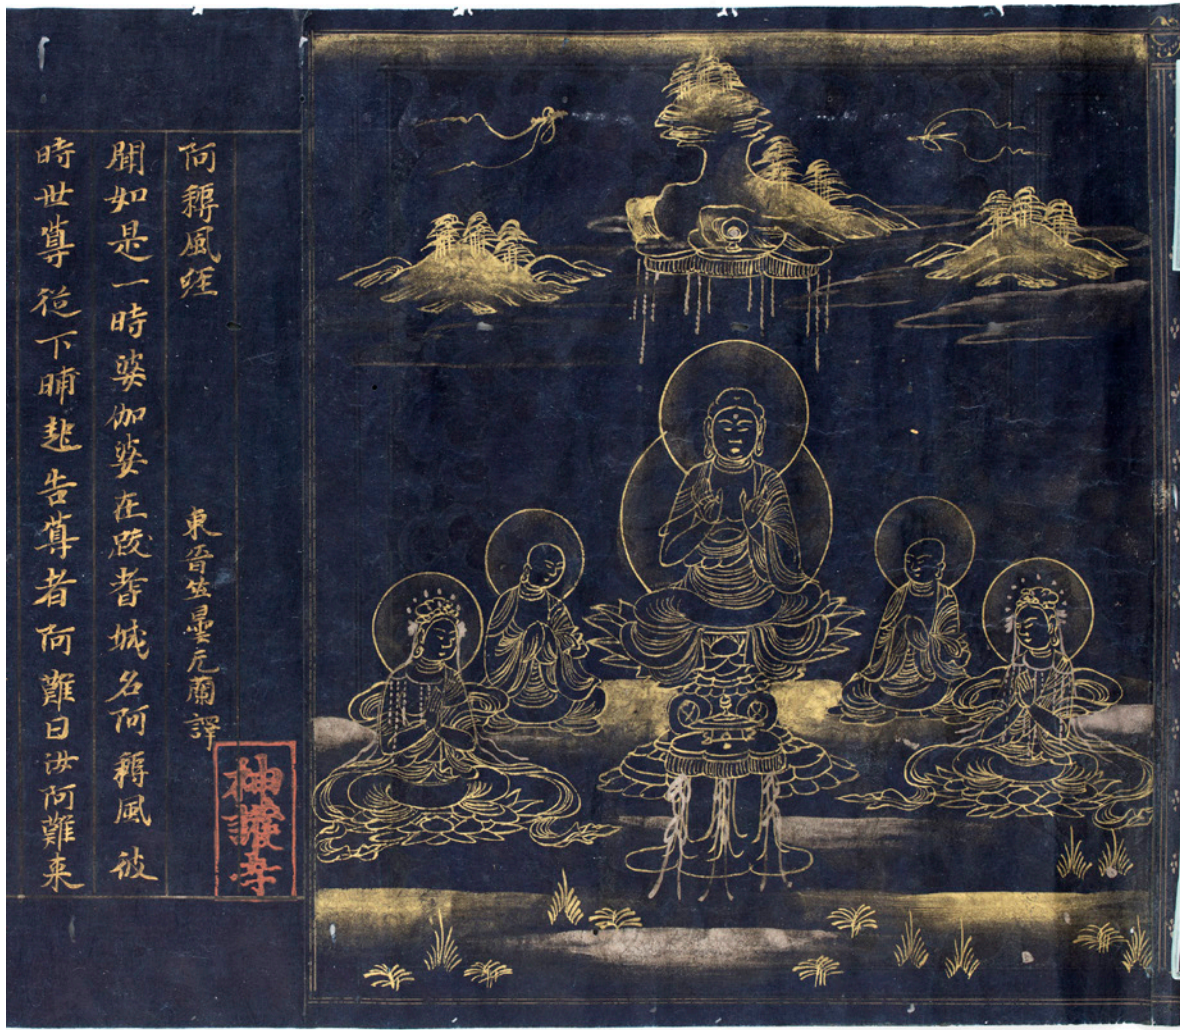 阿耨風經
東晉竺曇无蘭譯
聞如是一時婆伽婆在跋耆城名阿耨風彼
時世尊從下晡起告尊者阿難曰汝阿難來
神護寺